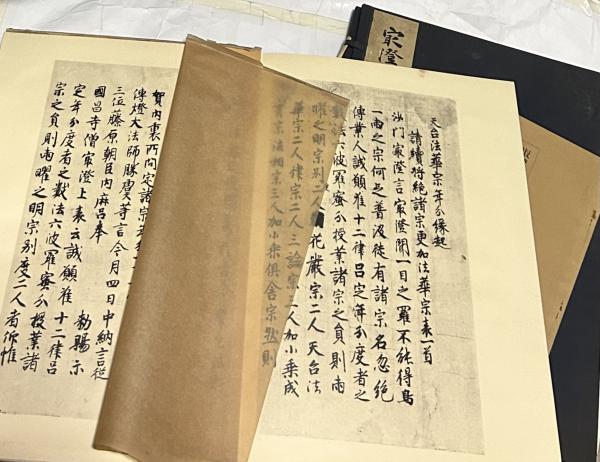 天台法華宗年分縁起
請續將絶諸宗更加法華宗表一首
沙門最澄言最澄聞一目之羅不能得鳥
一兩之宗何足普汲徒有諸宗名忽絶
傳業人誠願准十二律呂定年分度者之
數法六波羅蜜分授業諸宗之員則兩
曜之明宗別二人花嚴宗二人天台法
華宗二人律宗二人三論宗三人加小乘成
實宗法相宗三人加小乘俱舍宗然則
賀內裏所問定諸宗年
傳燈大法師勝虞等言今月四日中納言從
三位藤原朝臣內麻呂奉 勅賜示
國昌寺僧最澄上表云誠願准十二律呂
定年分度者之數法六波羅蜜分授業諸
宗之員則兩曜之明宗別度二人者仰惟
最澄